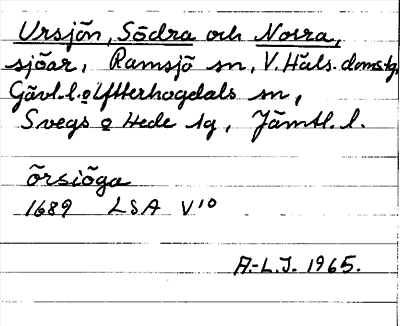 Ursjön, Södra och Norra,
sjöar, Ramsjö sn, V. Häls. doms.tg,
Gävl.l. o Ytterhogdals sn,
Svegs o Hede tg, Jämtl.l.
örsiöga
1689 LSA V10
A.-L.J. 1965.